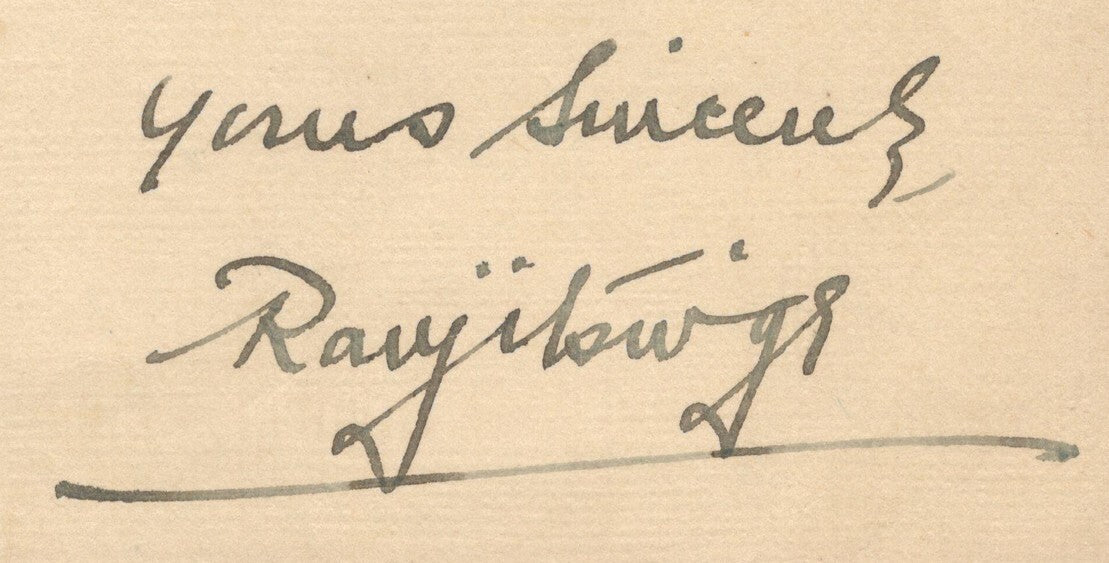 Yours Sincerely
Ranjitsingh